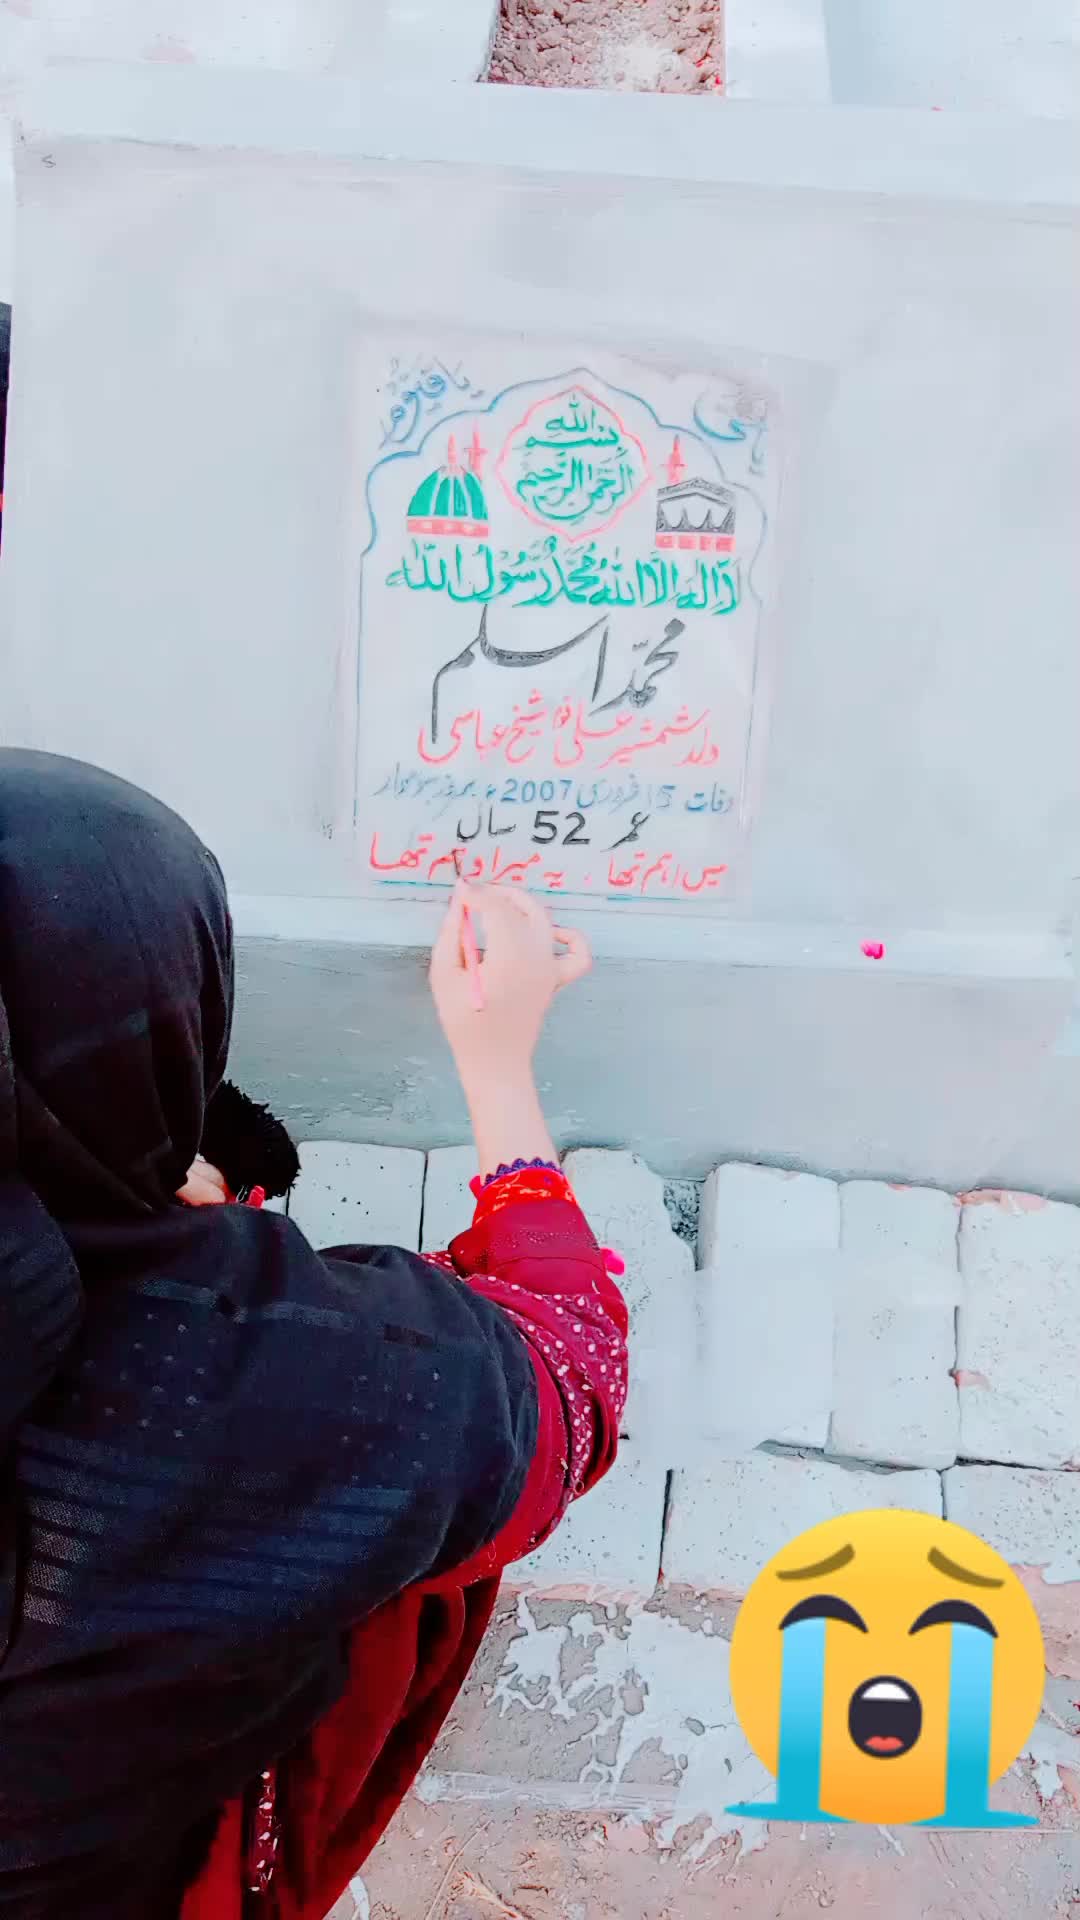 یا حی یا قیوم
بِسْمِ اللہِ الرَّحْمٰنِ الرَّحِیْمِ
لَا اِلٰهَ اِلَّا اللهُ مُحَمَّدٌ رَّسُوْلُ اللهِ
محمّد اسلم
ولد شمشیر علی قوم شیخ عباسی
وفات 15 فروری 2007ء بروز سوموار
عمر 52 سال
میں اہم تھا، یہ میرا وہم تھا